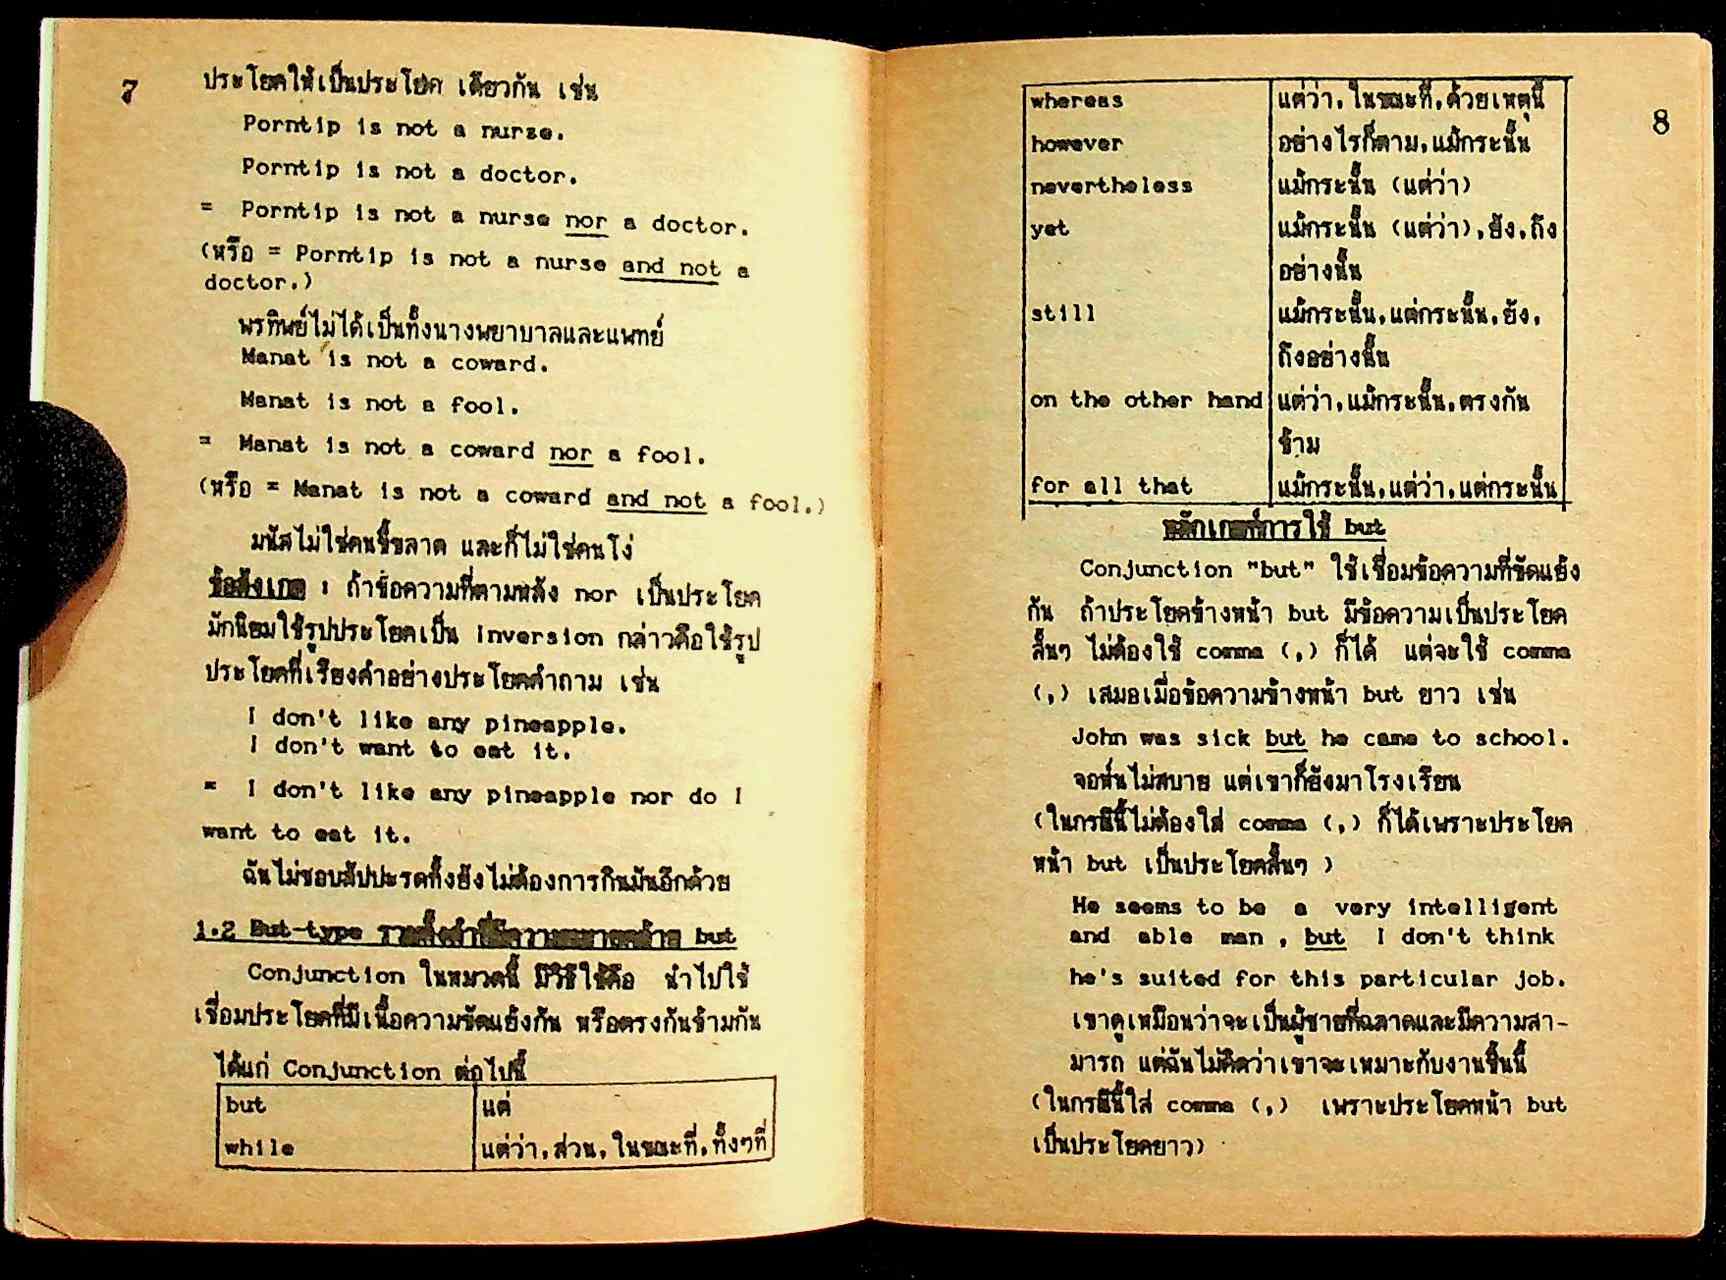 7
ประโยคให้เป็นประโยค เดียวกัน เช่น
Porntip is not a nurse.
Porntip is not a doctor.
= Porntip is not a nurse nor a doctor.
(หรือ = Porntip is not a nurse and not a
doctor.)
พรทิพย์ไม่ได้เป็นทั้งนางพยาบาลและแพทย์
Manat is not a coward.
Manat is not a fool.
= Manat is not a coward nor a fool.
(หรือ = Manat is not a coward and not a fool.)
มนัสไม่ใช่คนขี้ขลาด และก็ไม่ใช่คนโง่
ข้อสังเกต : ถ้าข้อความที่ตามหลัง nor เป็นประโยค
มักนิยมใช้รูปประโยคเป็น Inversion กล่าวคือใช้รูป
ประโยคที่เรียงคำอย่างประโยคคำถาม เช่น
I don't like any pineapple.
I don't want to eat it.
= I don't like any pineapple nor do I
want to eat it.
ฉันไม่ชอบสัปปะรดทั้งยังไม่ต้องการกินมันอีกด้วย
1.2 But-type รวมทั้งคำที่มีความหมายคล้าย but
Conjunction ในหมวดนี้ มีวิธีใช้คือ นำไปใช้
เชื่อมประโยคที่มีเนื้อความขัดแย้งกัน หรือตรงกันข้ามกัน
ได้แก่ Conjunction ต่อไปนี้
but แต่
while แต่ว่า,ส่วน,ในขณะที่,ทั้งๆที่
8
whereas แต่ว่า,ในขณะที่,ด้วยเหตุนี้
however อย่างไรก็ตาม,แม้กระนั้น
nevertheless แม้กระนั้น (แต่ว่า)
yet แม้กระนั้น (แต่ว่า),ยัง,ถึง
อย่างนั้น
still แม้กระนั้น,แต่กระนั้น,ยัง,
ถึงอย่างนั้น
on the other hand แต่ว่า,แม้กระนั้น,ตรงกัน
ข้าม
for all that แม้กระนั้น,แต่ว่า,แต่กระนั้น
หลักเกณฑ์การใช้ but
Conjunction "but" ใช้เชื่อมข้อความที่ขัดแย้ง
กัน ถ้าประโยคข้างหน้า but มีข้อความเป็นประโยค
สั้นๆ ไม่ต้องใช้ comma (,) ก็ได้ แต่จะใช้ comma
(,) เสมอเมื่อข้อความข้างหน้า but ยาว เช่น
John was sick but he came to school.
จอห์นไม่สบาย แต่เขาก็ยังมาโรงเรียน
(ในกรณีนี้ไม่ต้องใส่ comma (,) ก็ได้เพราะประโยค
หน้า but เป็นประโยคสั้นๆ )
He seems to be a very intelligent
and able man , but I don't think
he's suited for this particular job.
เขาดูเหมือนว่าจะเป็นผู้ชายที่ฉลาดและมีความสา-
มารถ แต่ฉันไม่คิดว่าเขาจะเหมาะกับงานชิ้นนี้
(ในกรณีนี้ใส่ comma (,) เพราะประโยคหน้า but
เป็นประโยคยาว)